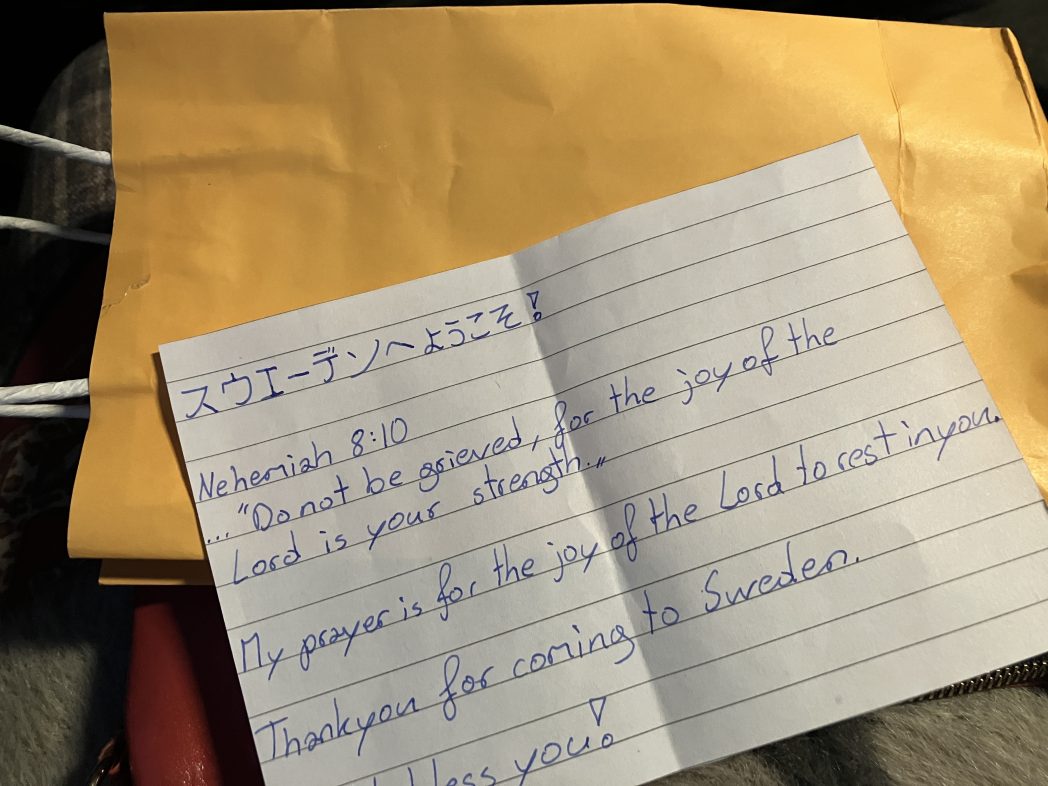 スウエーデンへようこそ!
Nehemiah 8:10
... "Do not be grieved, for the joy of the
Lord is your strength..„
My prayer is for the joy of the Lord to rest in you.
Thankyou for coming to Sweden.
bless you!